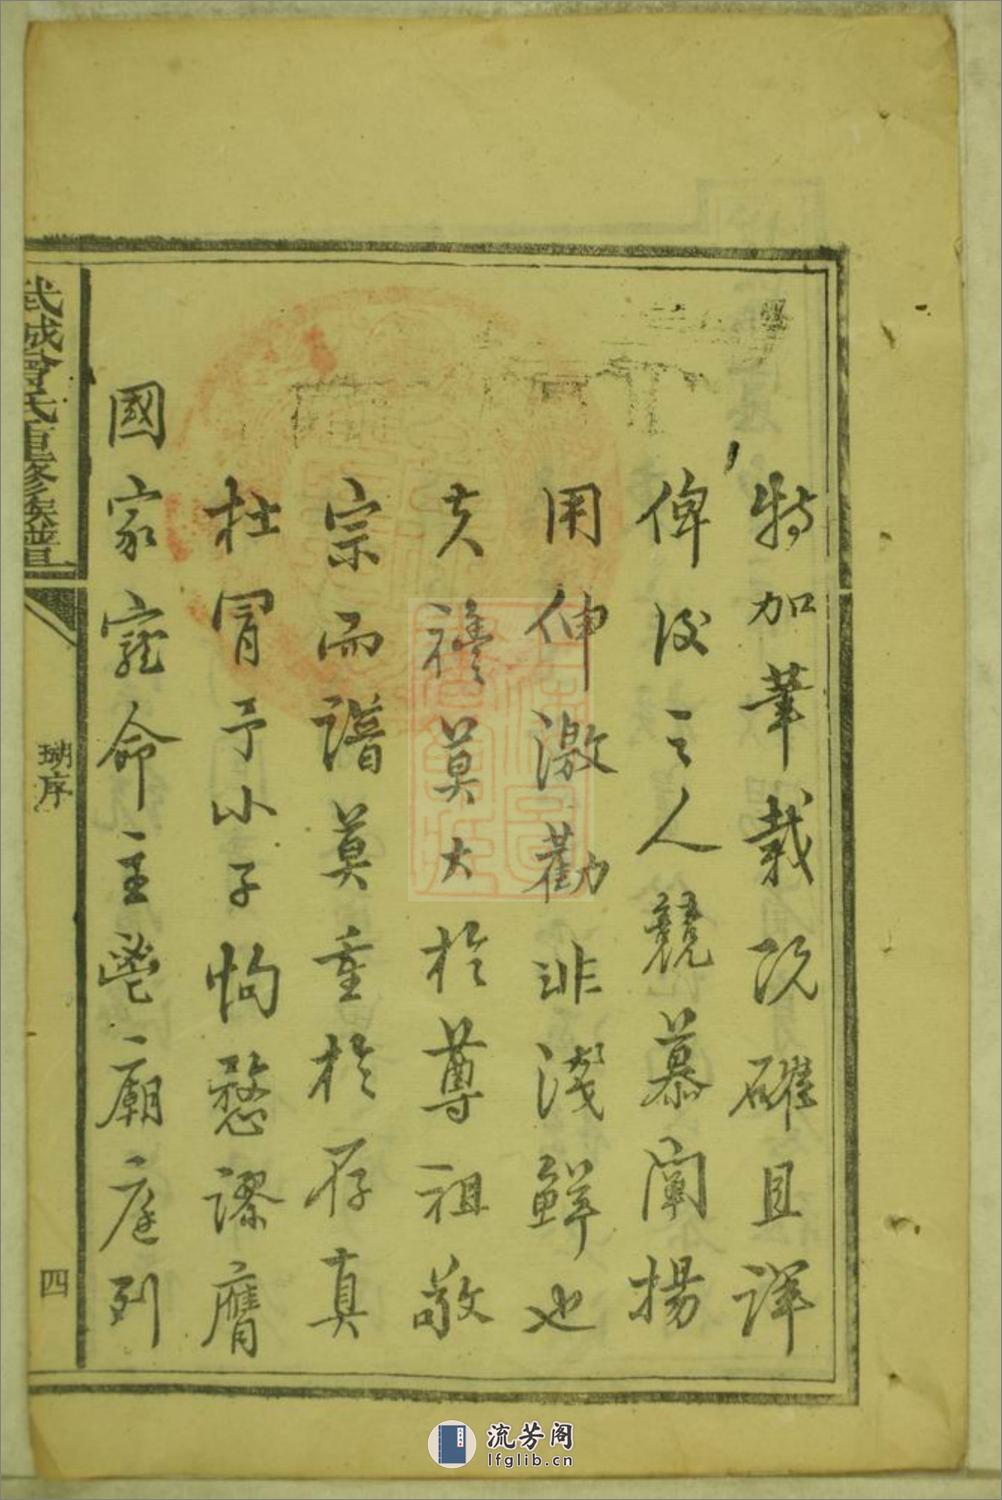 特加筆載既確且詳
俾後之人競慕闡揚
用伸激勸非淺鮮也
夫禮莫大於尊祖敬
宗而譜莫重於存真
杜冒予小子恂愗謬膺
國家寵命主鬯廟庭列
武城曾氏重修族譜
瑚序
四
流芳阁
lfglib.cn